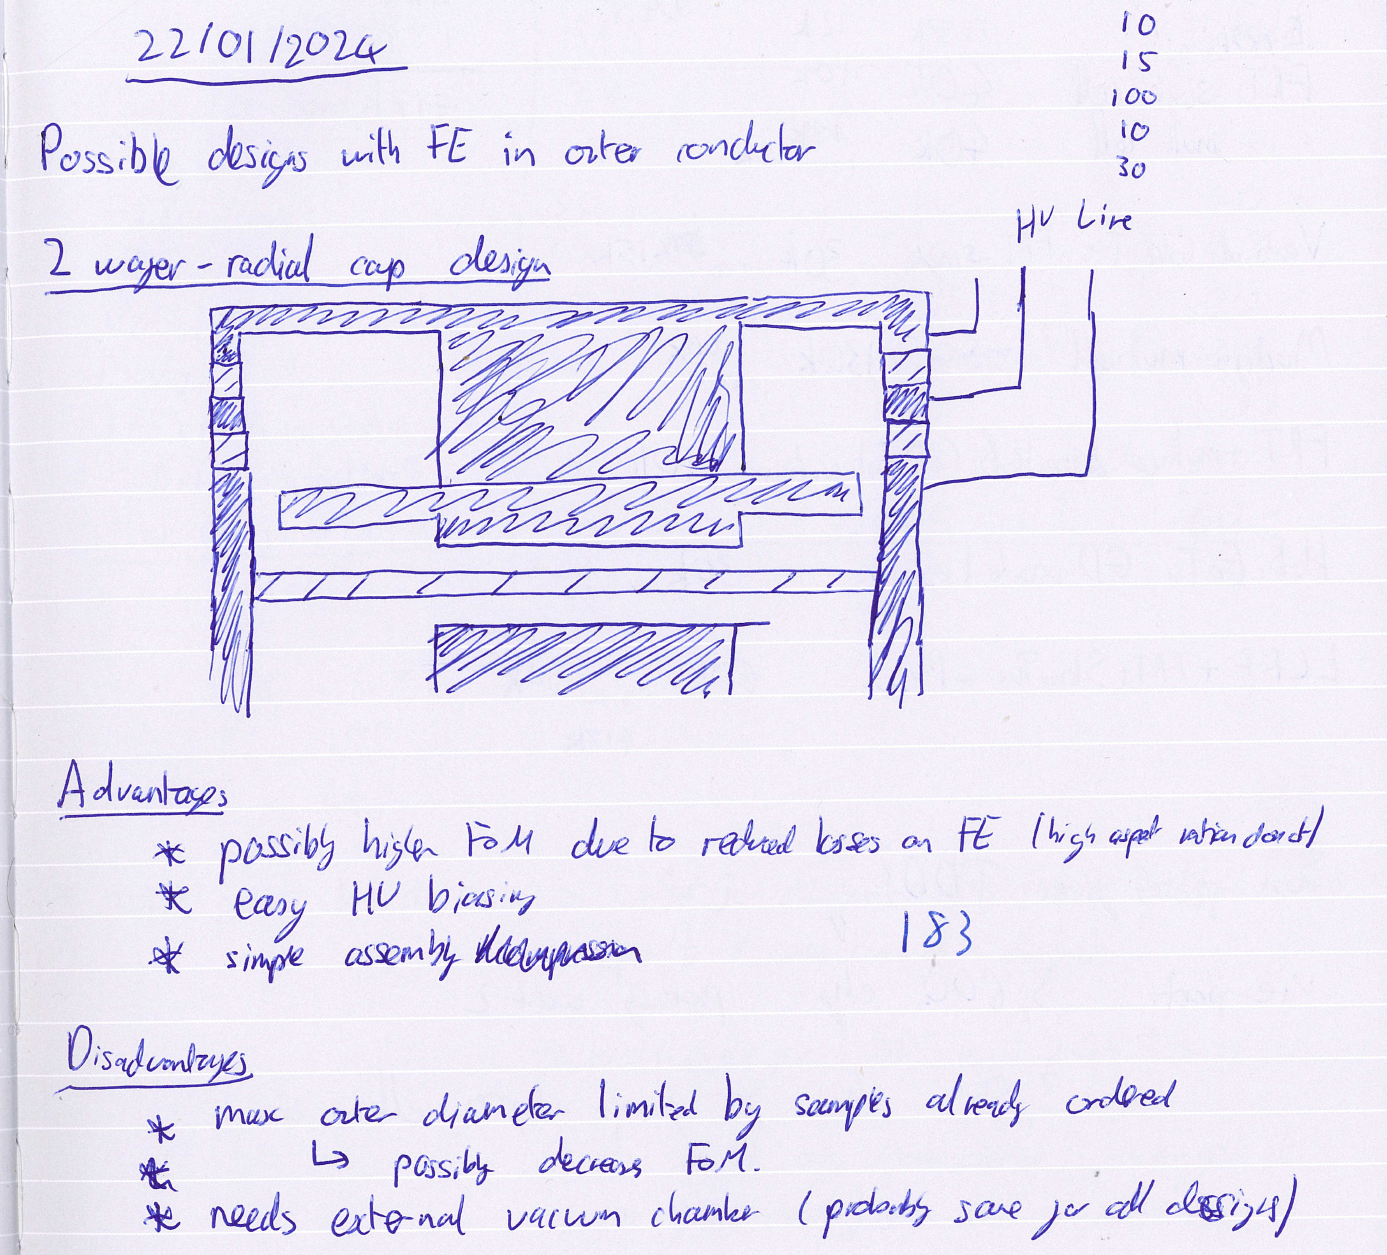 22/01/2024
10
15
100
10
30
Possible designs with FE in outer conductor
HV Line
2 wafer-radial cap design
Advantages
* possibly higher FoM due to reduced losses on FE (high aspect
* easy HV biasing
* simple assembly
183
Disadvantages
* max outer diameter limited by samples already ordered
↳ possibly decreases FoM.
* needs external vacuum chamber (probably same for all designs)